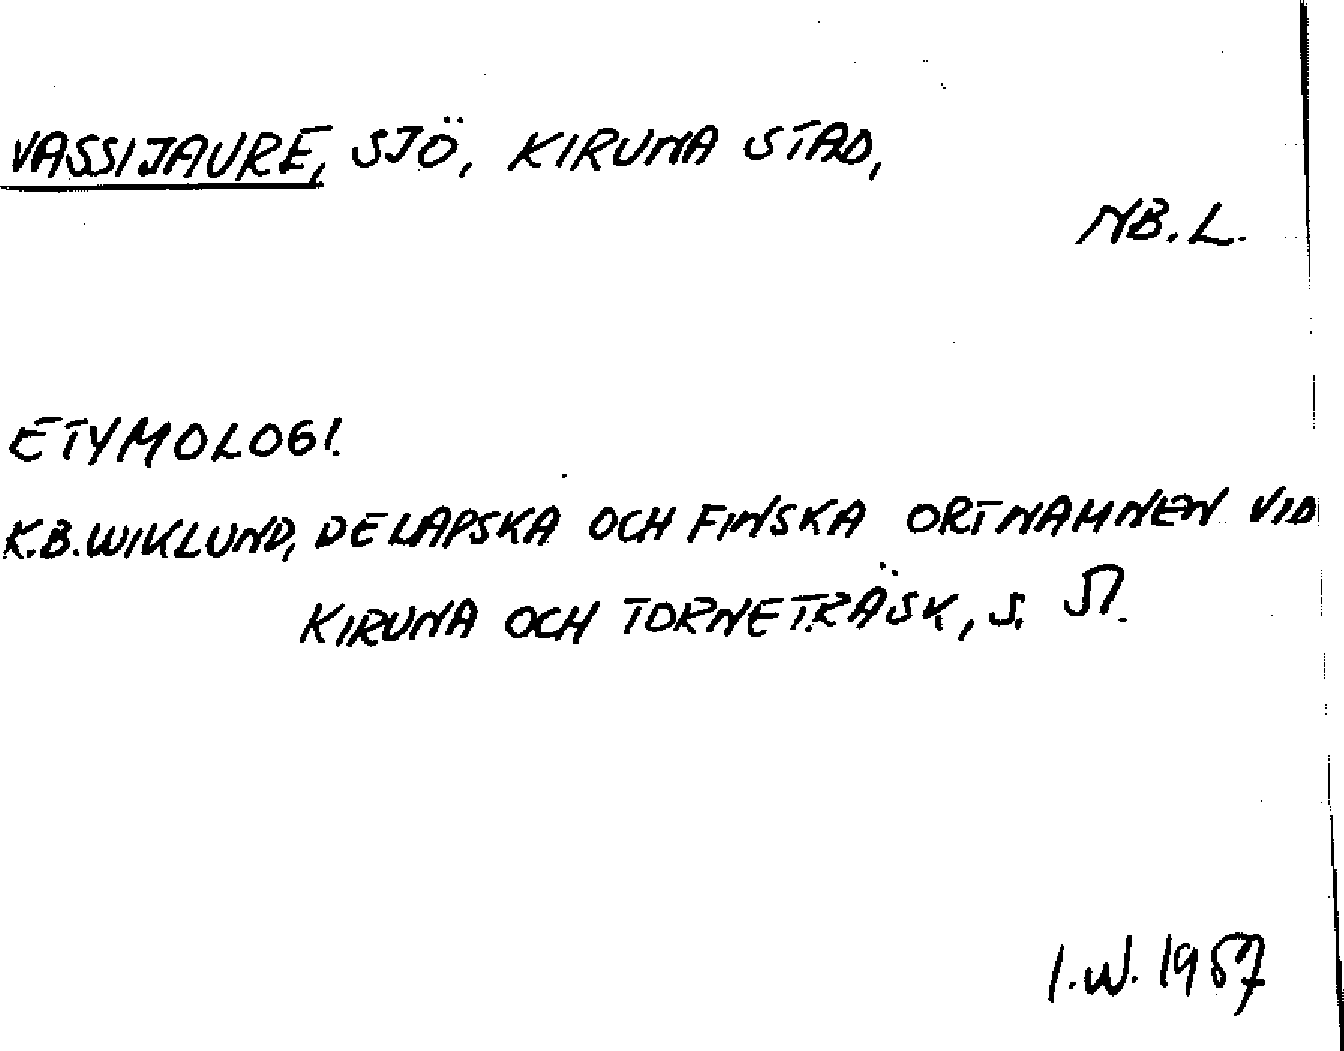 VASSIJAURE, SJÖ, KIRUNA STAD,
NB.L.
ETYMOLOGI.
K.B. WIKLUND, DE LAPSKA OCH FINSKA ORTNAMNEN VID
KIRUNA OCH TORNETRÄSK, S. 57.
I.W. 1967